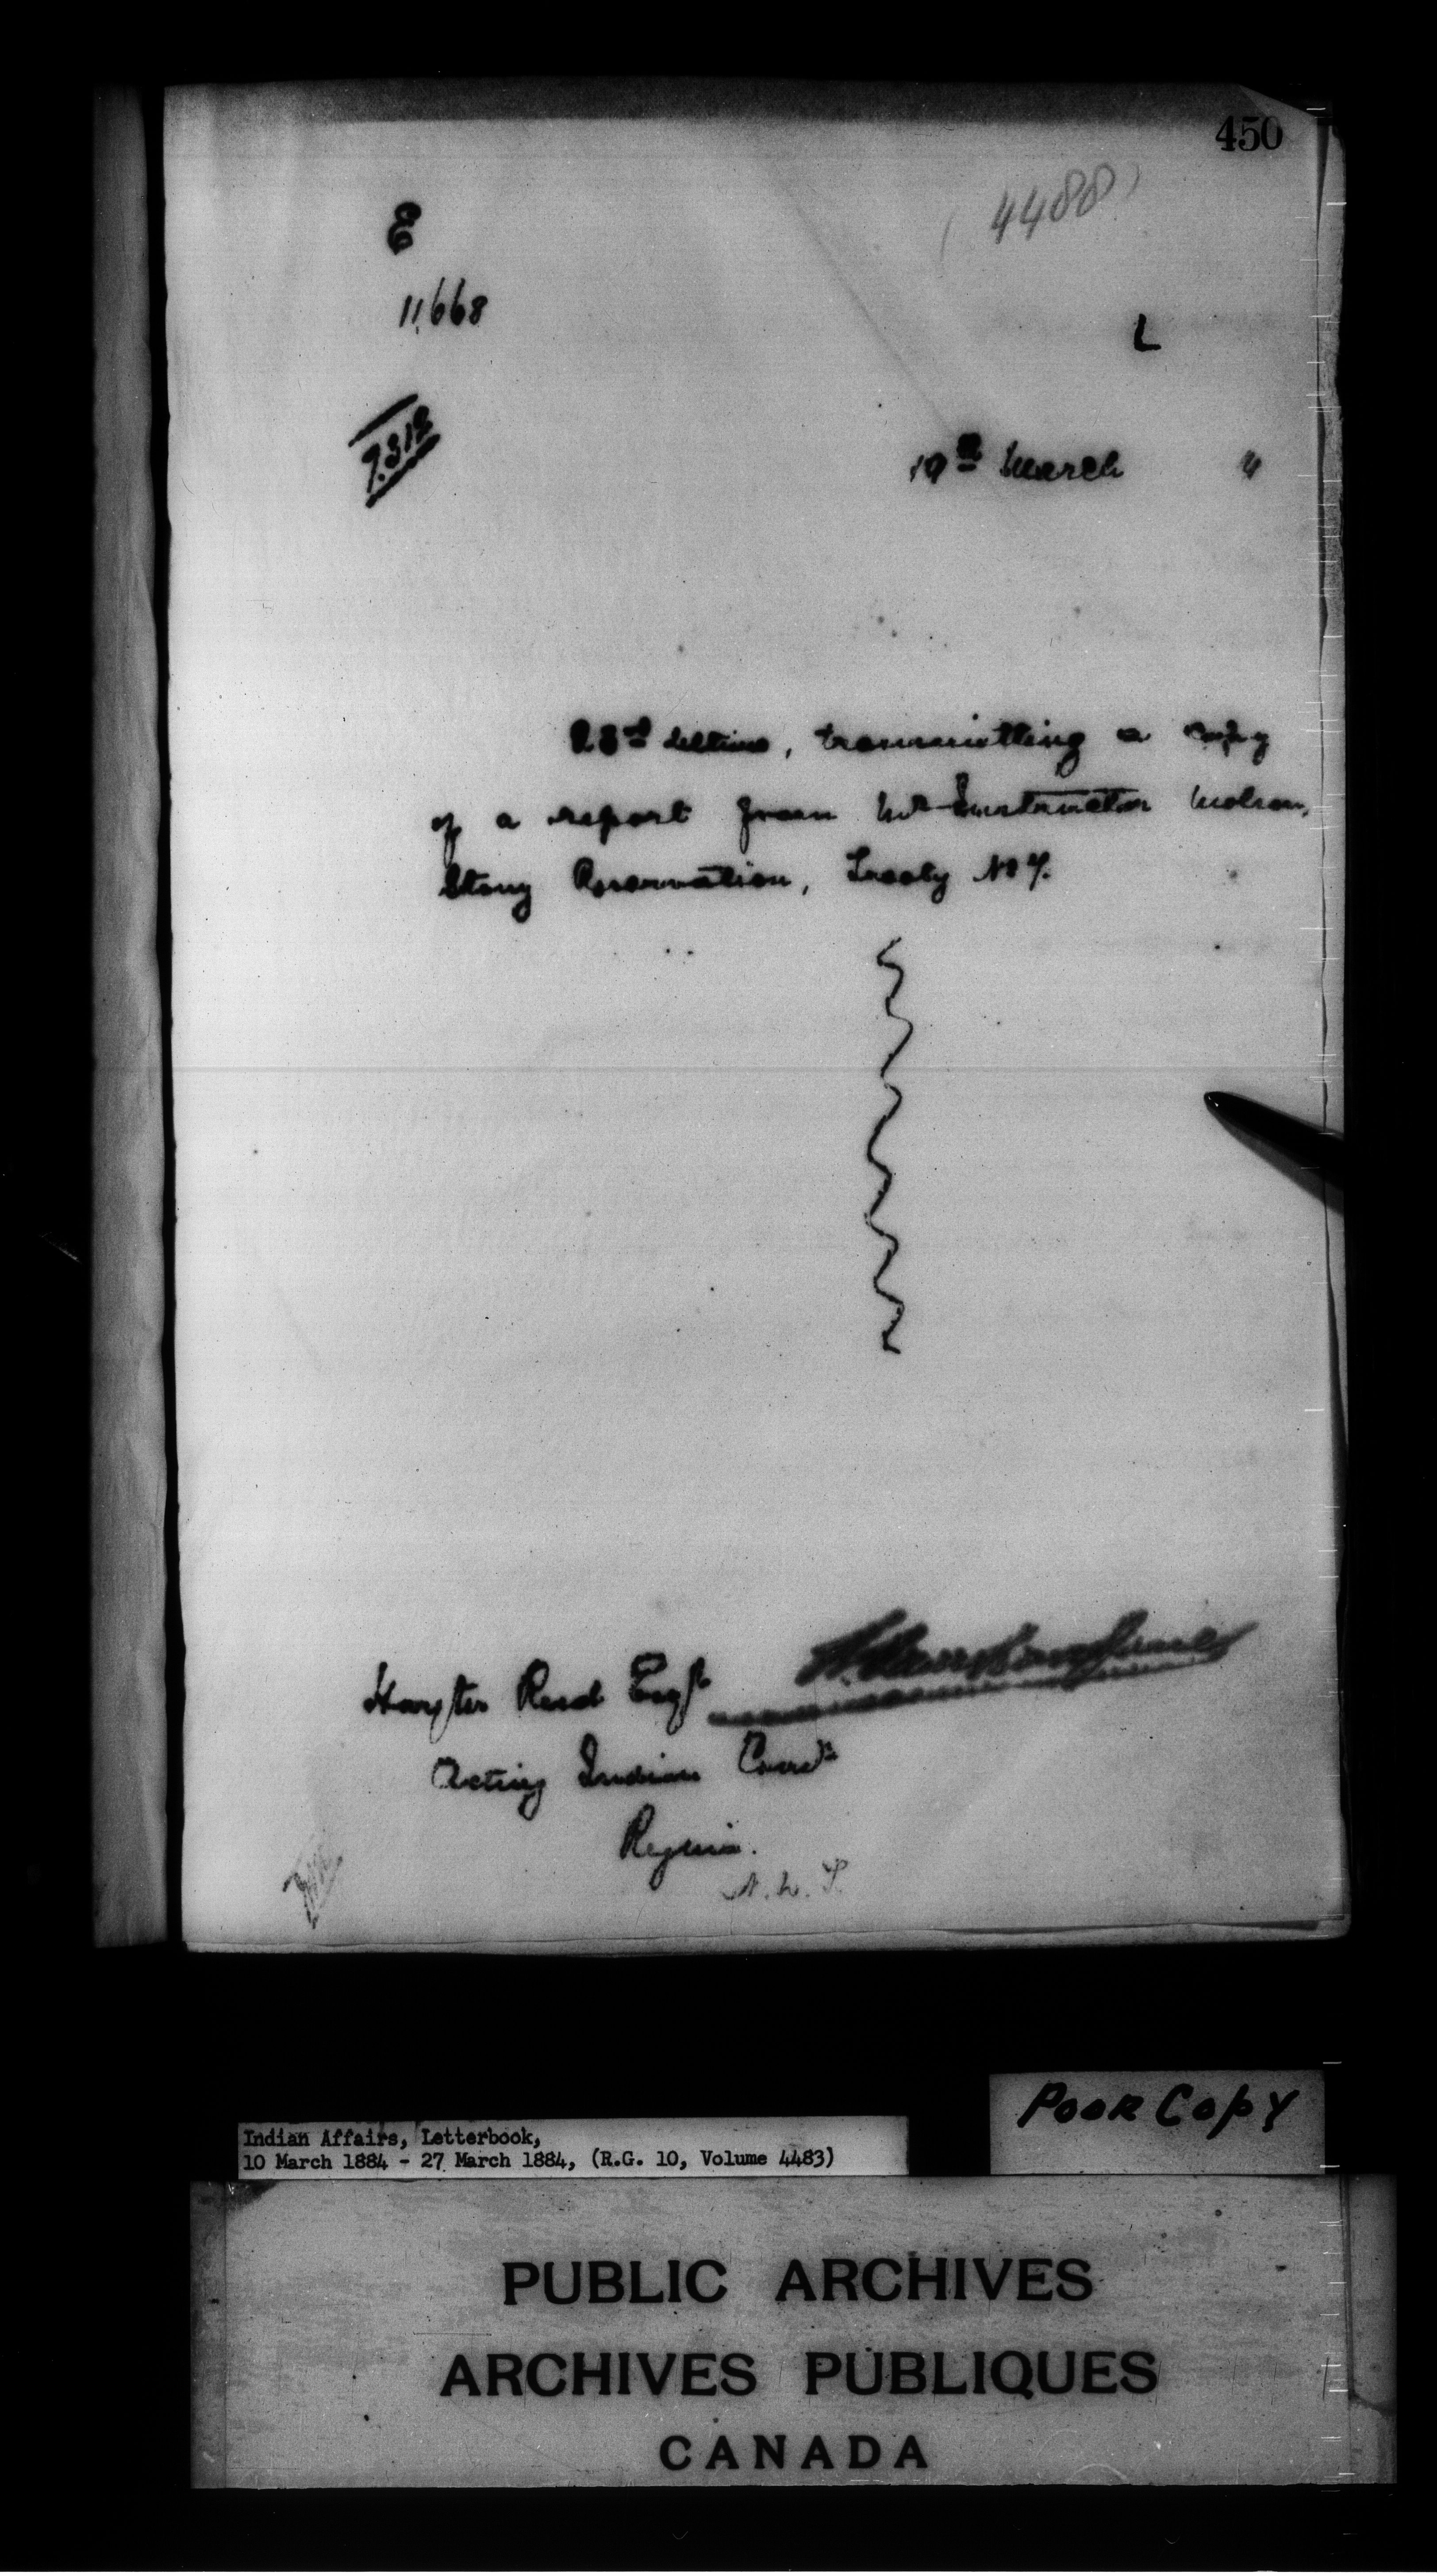 450
4488
E
11,668
L
7.312
19th March "
23rd Ultimo, transmitting a copy
of a report from Mr Instructor
Stony Reservation, Treaty No 7.
Hayter Reed Esqr
Acting Indian Comr
Regina.
N. W. T.
Poor Copy
Indian Affairs, Letterbook,
10 March 1884 - 27 March 1884, (R.G. 10, Volume 4483)
PUBLIC ARCHIVES
ARCHIVES PUBLIQUES
CANADA